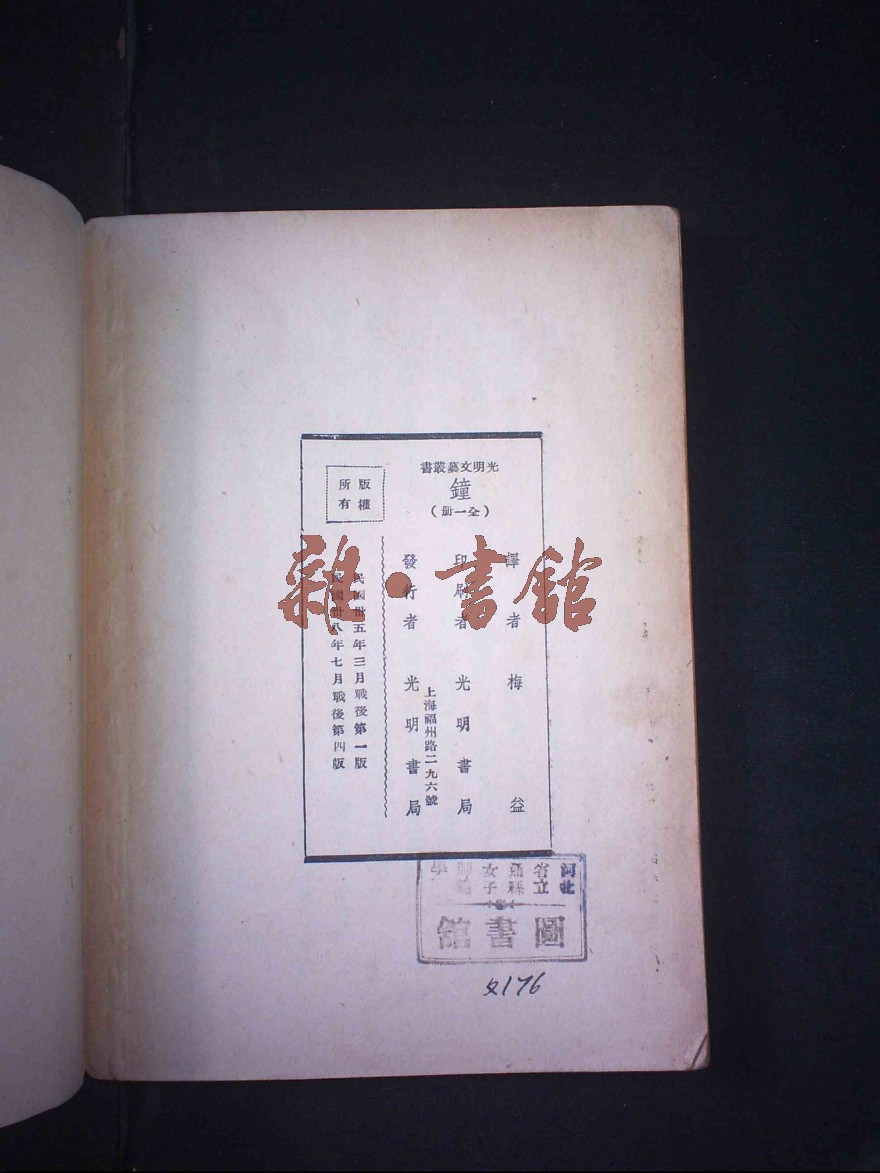 光明文藝叢書
鐘
(全一册)
譯者 梅益
印刷者 光明書局
上海福州路二九六號
發行者 光明書局
民國卅五年三月戰後第一版
民國卅八年七月戰後第四版
版權
所有
雜·書館
河北
省立
通縣
女子
師範
學
圖書館
文176